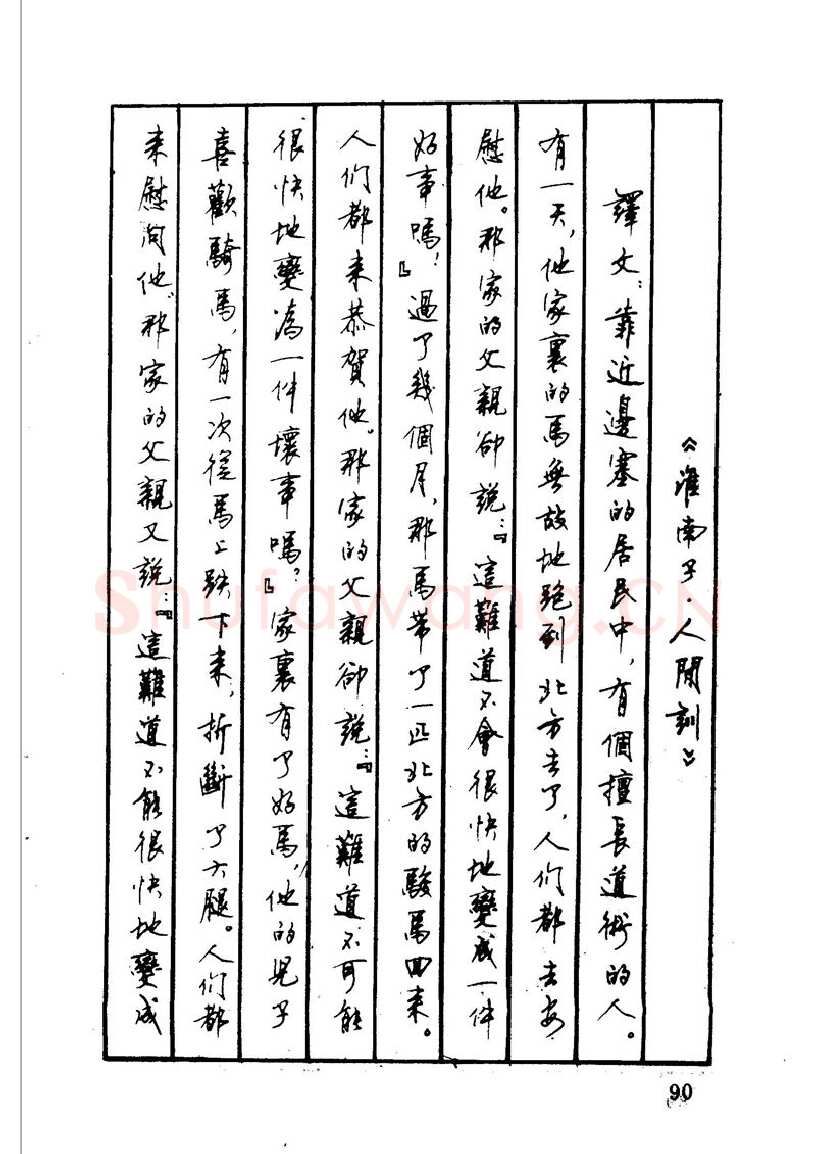 《淮南子·人間訓》
譯文：靠近邊塞的居民中，有個擅長道術的人。
有一天，他家裏的馬無故地跑到北方去了，人们都去安
慰他。那家的父親卻說：『這難道不會很快地變成一件
好事嗎？』過了幾個月，那馬带了一匹北方的駿馬回来。
人们都来恭賀他。那家的父親卻說：『這難道不可能
很快地變爲一件壞事嗎？』家裏有了好馬，他的兒子
喜歡騎馬，有一次從馬上跌下来，折斷了大腿。人们都
来慰问他，那家的父親又說：『這難道不能很快地變成
90
Shufawang.CN